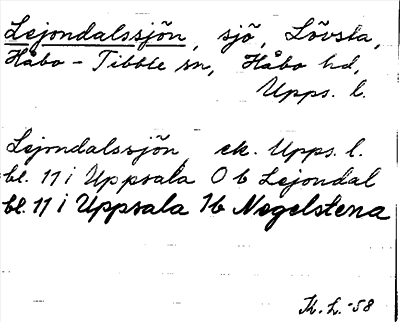 Lejondalssjön, sjö, Lövsta,
Håbo-Tibble sn, Håbo hd,
Upps. l.
Lejondalssjön ek. Upps. l.
bl. 11 i Uppsala 0 b Lejondal
bl. 11 i Uppsala 1b Negelstena
K. L. -58